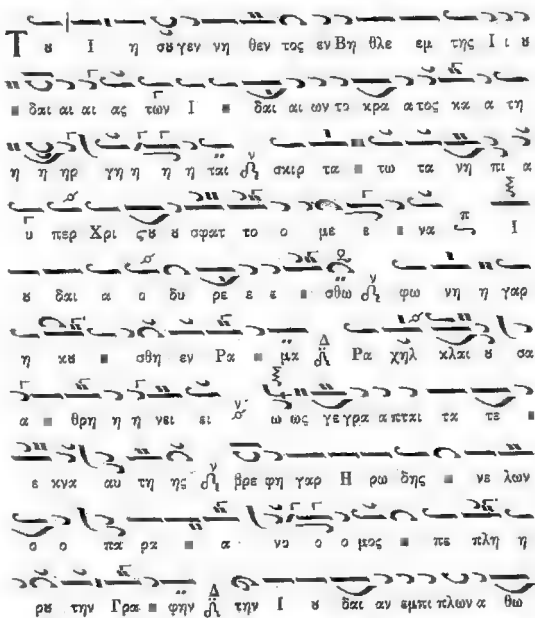 Τ ȣ Ι η σȣ γεν νη θεν τος εν Βη θλε εμ της Ι ι ȣ
δαι αι αι ας των Ι δαι αι ων το κρα α τος κα α τη
η η ηρ γη η η η ται σκιρ τα τω τα νη πι α
υ περ Χρι ϛȣ ȣ σφατ το ο με ε να Ι
ȣ δαι α ο δυ ρε ε ε σθω φω νη η γαρ
η κȣ σθη εν Ρα μα Ρα χηλ κλαι ȣ σα
α θρη η η νει ει ω ως γε γρα α πται τα τε
ε κνα αυ τη ης βρε φη γαρ Η ρω δης νε λων
ο ο πα ρα α νο ο ο μος πε πλη η
ρȣ την Γρα φην την Ι ȣ δαι αν εμ πι πλων α θω